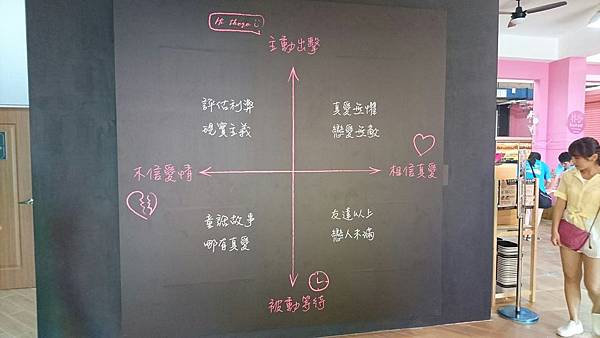 主動出擊
評估利弊
現實主義
真愛無懼
戀愛無敵
不信愛情
相信真愛
童話故事
哪有真愛
友達以上
戀人未滿
被動等待